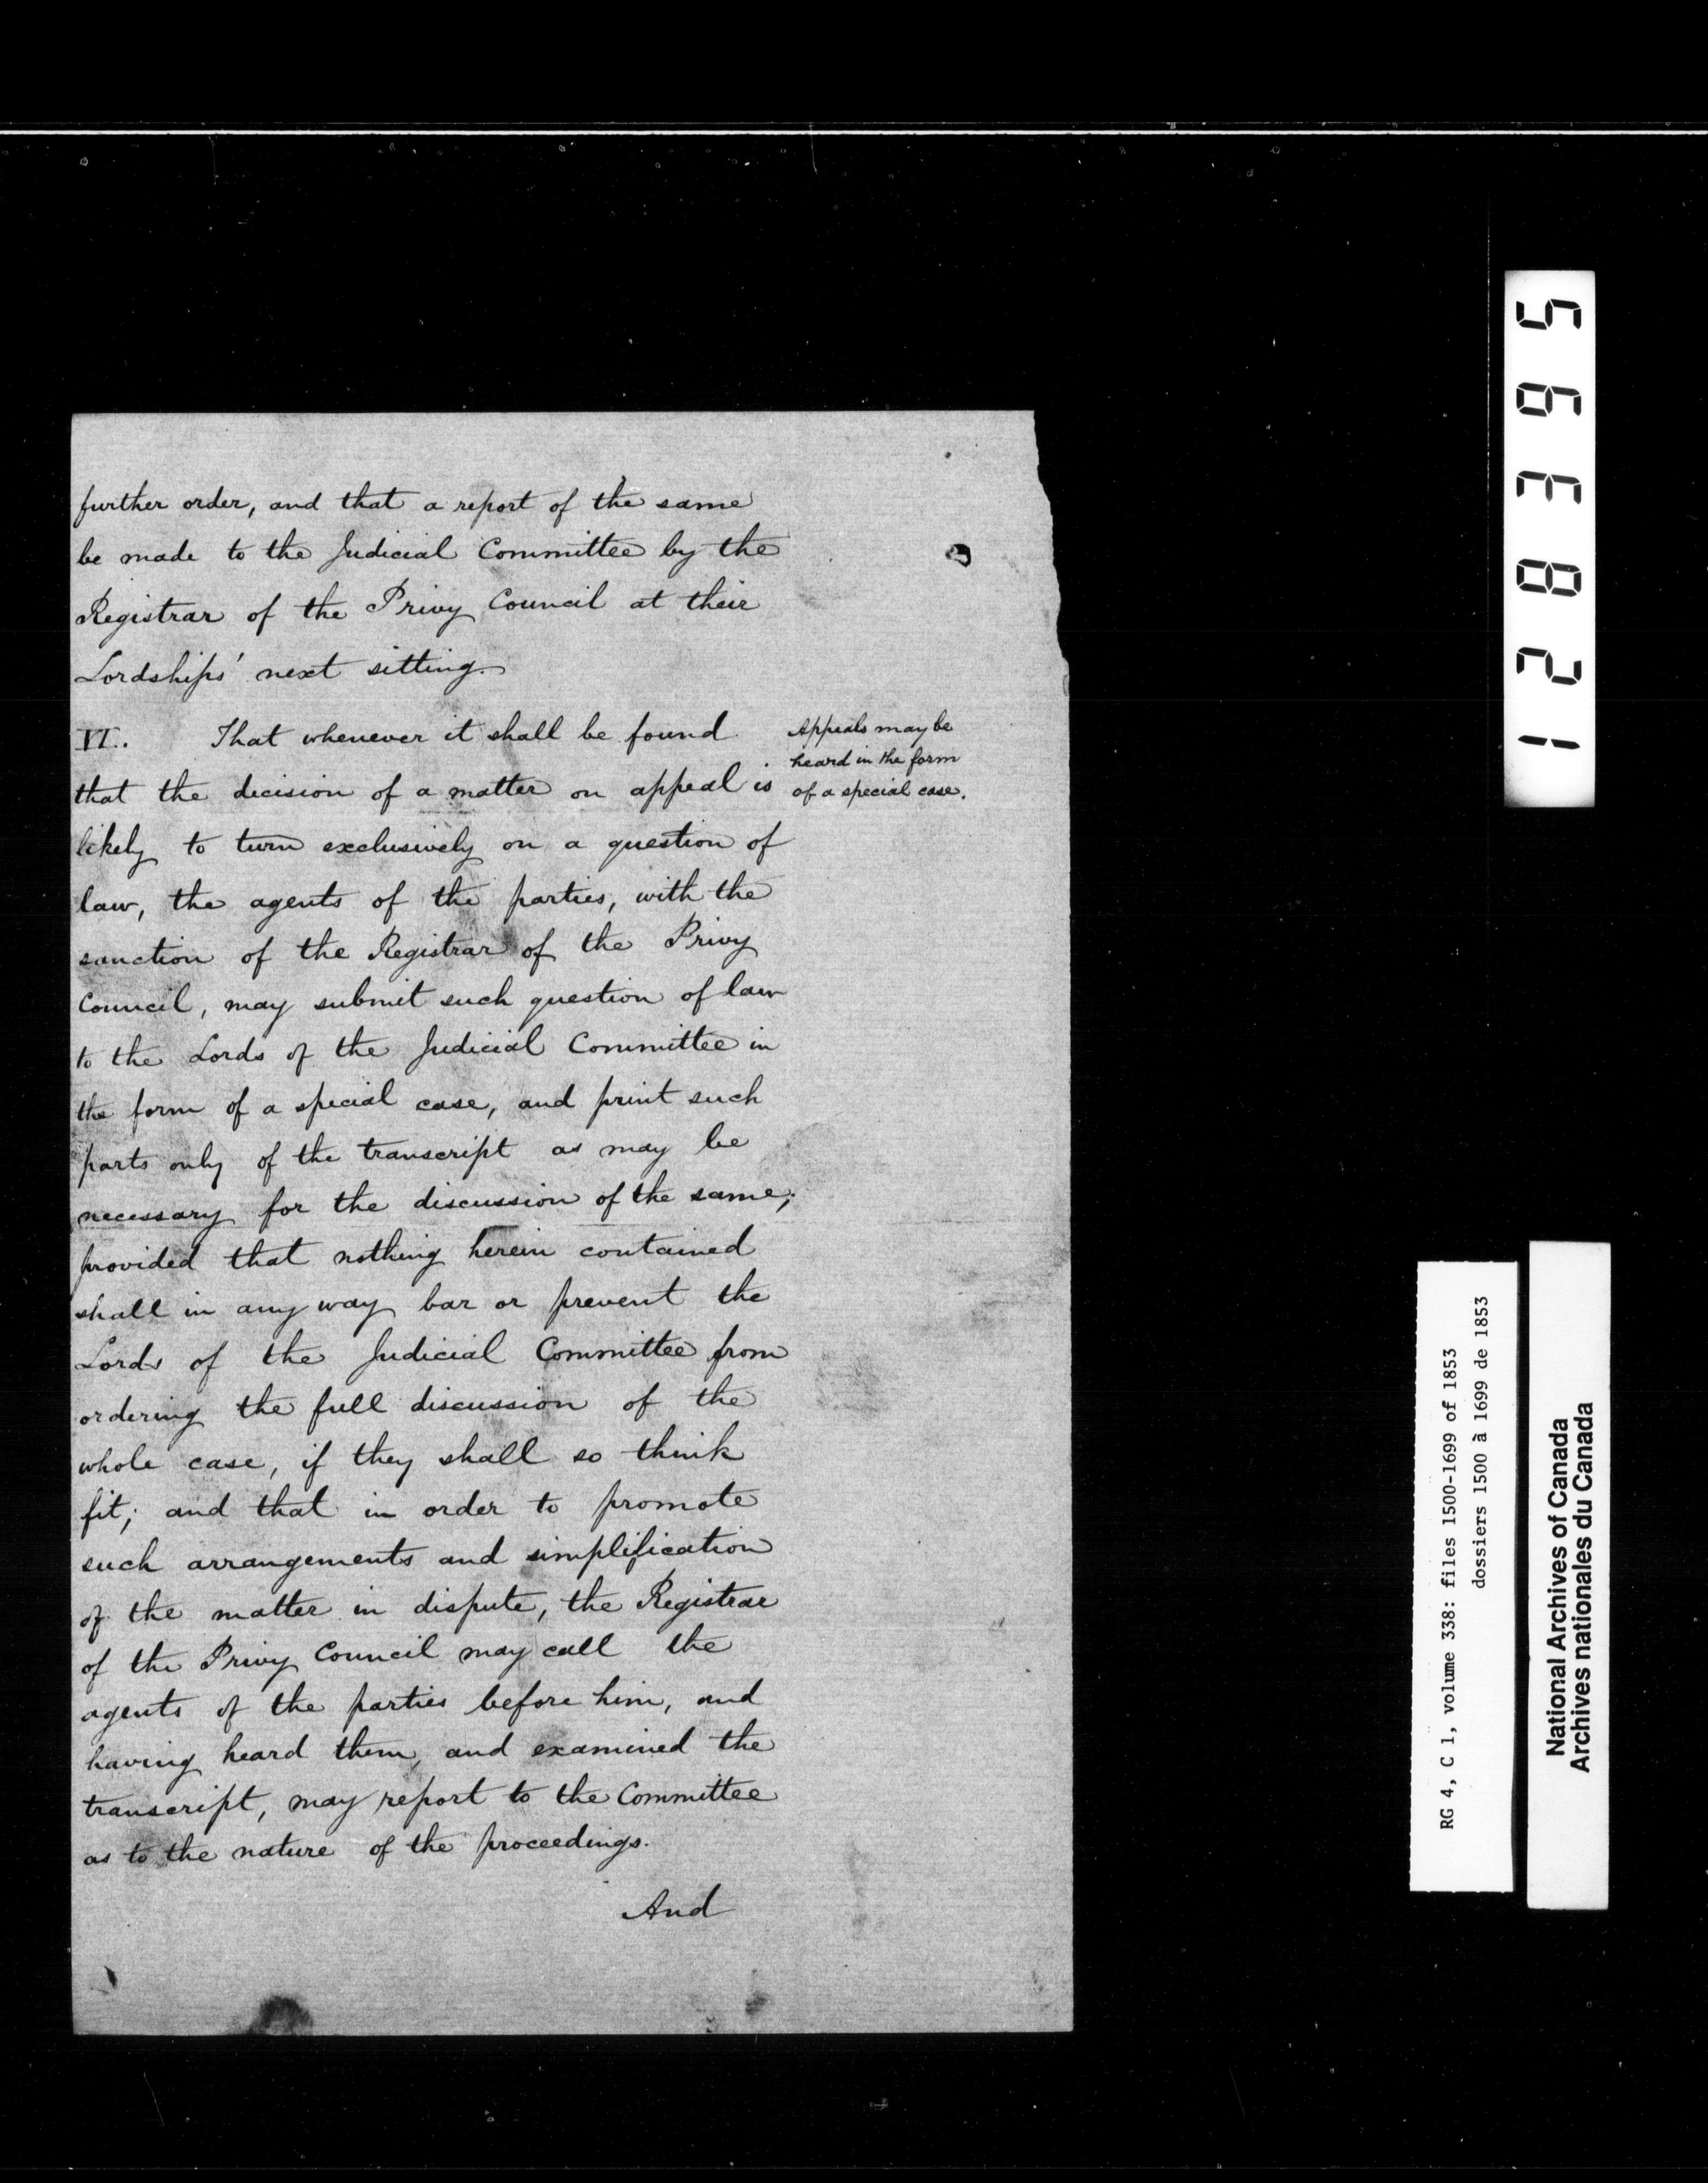 further order, and that a report of the same
be made to the Judicial Committee by the
Registrar of the Privy Council at their
Lordships' next sitting.
VI. That whenever it shall be found
that the decision of a matter on appeal is
likely to turn exclusively on a question of
law, the agents of the parties, with the
sanction of the Registrar of the Privy
Council, may submit such question of law
to the Lords of the Judicial Committee in
the form of a special case, and print such
parts only of the transcript as may be
necessary for the discussion of the same;
provided that nothing herein contained
shall in any way bar or prevent the
Lords of the Judicial Committee from
ordering the full discussion of the
whole case, if they shall so think
fit; and that in order to promote
such arrangements and simplification
of the matter in dispute, the Registrar
of the Privy Council may call the
agents of the parties before him, and
having heard them, and examined the
transcript, may report to the Committee
as to the nature of the proceedings.
And
Appeals may be
heard in the form
of a special case.
128365
RG 4, C 1, volume 338: files 1500-1699 of 1853
dossiers 1500 à 1699 de 1853
National Archives of Canada
Archives nationales du Canada